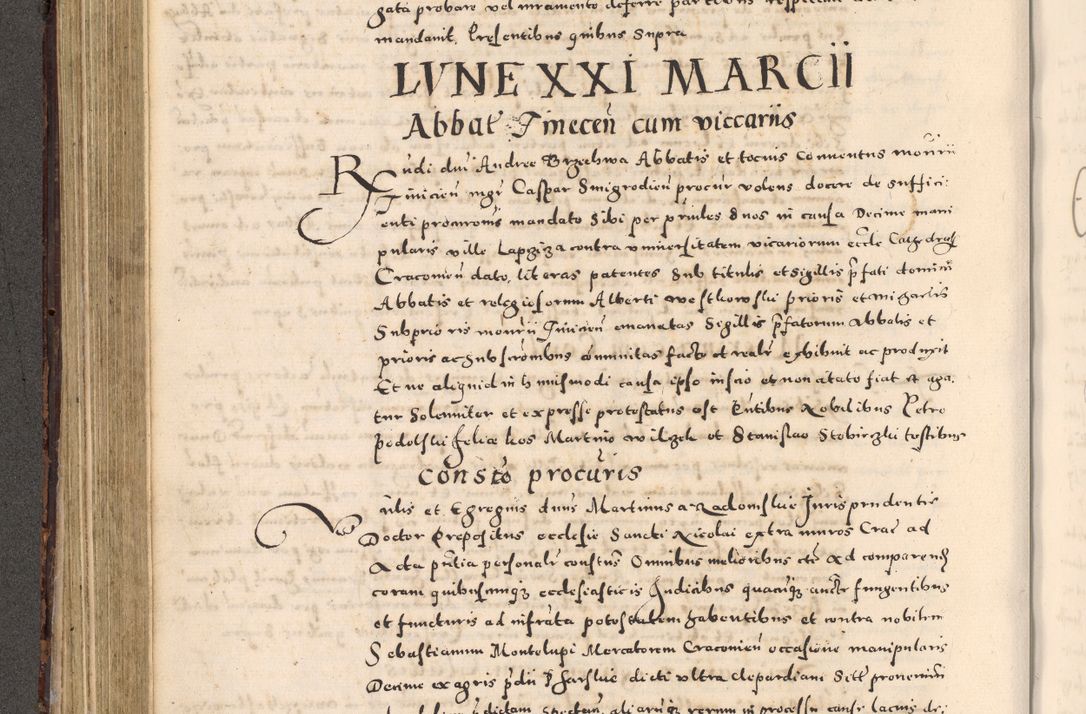 gata probare vel iuramento deferre partibus
mandavit. Presentibus quibus Supra
LVNE XXI MARCII
Abbat Tinecen cum viccariis
Rndi dni Andree Brzechwa Abbatis et tocius Conventus mon rii
Tinicien mgr Caspar Smigrodien procur volens docere de suffici
enti procurationis mandato Sibi per prīnles duos in causa Decime mani
pularis ville Lapziza contra universitatem vicariorum eccle Cathedral
Cracovien dato, literas patentes Sub titulis et sigillis pfati domini
Abbatis et relegiosorum Alberti westkowski prioris et
Subprioris mon rii Tinicien emanatas Sigillis pfatorum Abbatis et
prioris ac subscrōnibus cōmunitas facto et realr exhibuit ac produxit
Et ne aliquid in huiusmodi causa ipso inscio et non citato fiat et aga
tur Solenniter et expresse protestatus est Pntibus Nobilibus Petro
Podolski felice kos Martino wilczek et Stanislao Stobieczki testibus
Consto procuris
Vnlis et Egregius dnus Martinus a Radomskie Jurisprudentie
Doctor Prepositus ecclesie Sancti Nicolai extra muros Crac ad
Acta pntia personalr constus Omnibus melioribus etc Ad comparend
coram quibuscunqz ecclesiasticis Judicibus quacunqz auctr fungentibus
et functuris ad infrata potestatem habentibus et contra nobilem
Sebastianum Montelupi Mercatorem Cracovien occasione manipularis
Decime ex agris pdii Pharskie dicti ultra Clepardiam Sitt provenien
aliarumqz rerum in processu cause lacius de